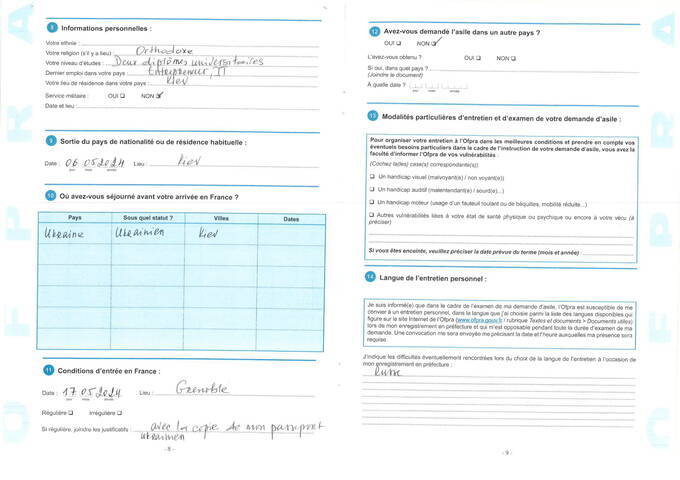 OFPRA
8 Informations personnelles :
Votre ethnie :
Votre religion (s'il y a lieu) : Orthodoxe
Votre niveau d'études : Deux diplômes universitaires
Dernier emploi dans votre pays : Entrepreneur, IT
Votre lieu de résidence dans votre pays : Kiev
Service militaire : OUI ❏ NON ☑
Date et lieu :
9 Sortie du pays de nationalité ou de résidence habituelle :
Date : 06 05 2024 Lieu : Kiev
jour mois année
10 Où avez-vous séjourné avant votre arrivée en France ?
Pays Sous quel statut ? Villes Dates
Ukraine Ukrainien Kiev
11 Conditions d'entrée en France :
Date : 17 05 2024 Lieu : Grenoble
jour mois année
Régulière ❏ Irrégulière ❏
Si régulière, joindre les justificatifs : avec la copie de mon passport
ukrainien
- 8 -
12 Avez-vous demandé l'asile dans un autre pays ?
OUI ❏ NON ☑
L'avez-vous obtenu ? OUI ❏ NON ❏
Si oui, dans quel pays ?
(Joindre le document)
A quelle date ?
jour mois année
13 Modalités particulières d'entretien et d'examen de votre demande d'asile :
Pour organiser votre entretien à l'Ofpra dans les meilleures conditions et prendre en compte vos
éventuels besoins particuliers dans le cadre de l'instruction de votre demande d'asile, vous avez la
faculté d'informer l'Ofpra de vos vulnérabilités :
(Cochez la(les) case(s) correspondante(s))
❏ Un handicap visuel (malvoyant(e) / non voyant(e))
❏ Un handicap auditif (malentendant(e) / sourd(e)...)
❏ Un handicap moteur (usage d'un fauteuil roulant ou de béquilles, mobilité réduite...)
❏ Autres vulnérabilités liées à votre état de santé physique ou psychique ou encore à votre vécu (à
préciser)
Si vous êtes enceinte, veuillez préciser la date prévue du terme (mois et année) :
14 Langue de l'entretien personnel :
Je suis informé(e) que dans le cadre de l'examen de ma demande d'asile, l'Ofpra est susceptible de me
convier à un entretien personnel, dans la langue que j'ai choisie parmi la liste des langues disponibles qui
figure sur le site Internet de l'Ofpra (www.ofpra.gouv.fr / rubrique Textes et documents > Documents utiles)
lors de mon enregistrement en préfecture et qui m'est opposable pendant toute la durée d'examen de ma
demande. Une convocation me sera envoyée me précisant la date et l'heure auxquelles ma présence sera
requise.
J'indique les difficultés éventuellement rencontrées lors du choix de la langue de l'entretien à l'occasion de
mon enregistrement en préfecture :
Russe
- 9 -
OFPRA